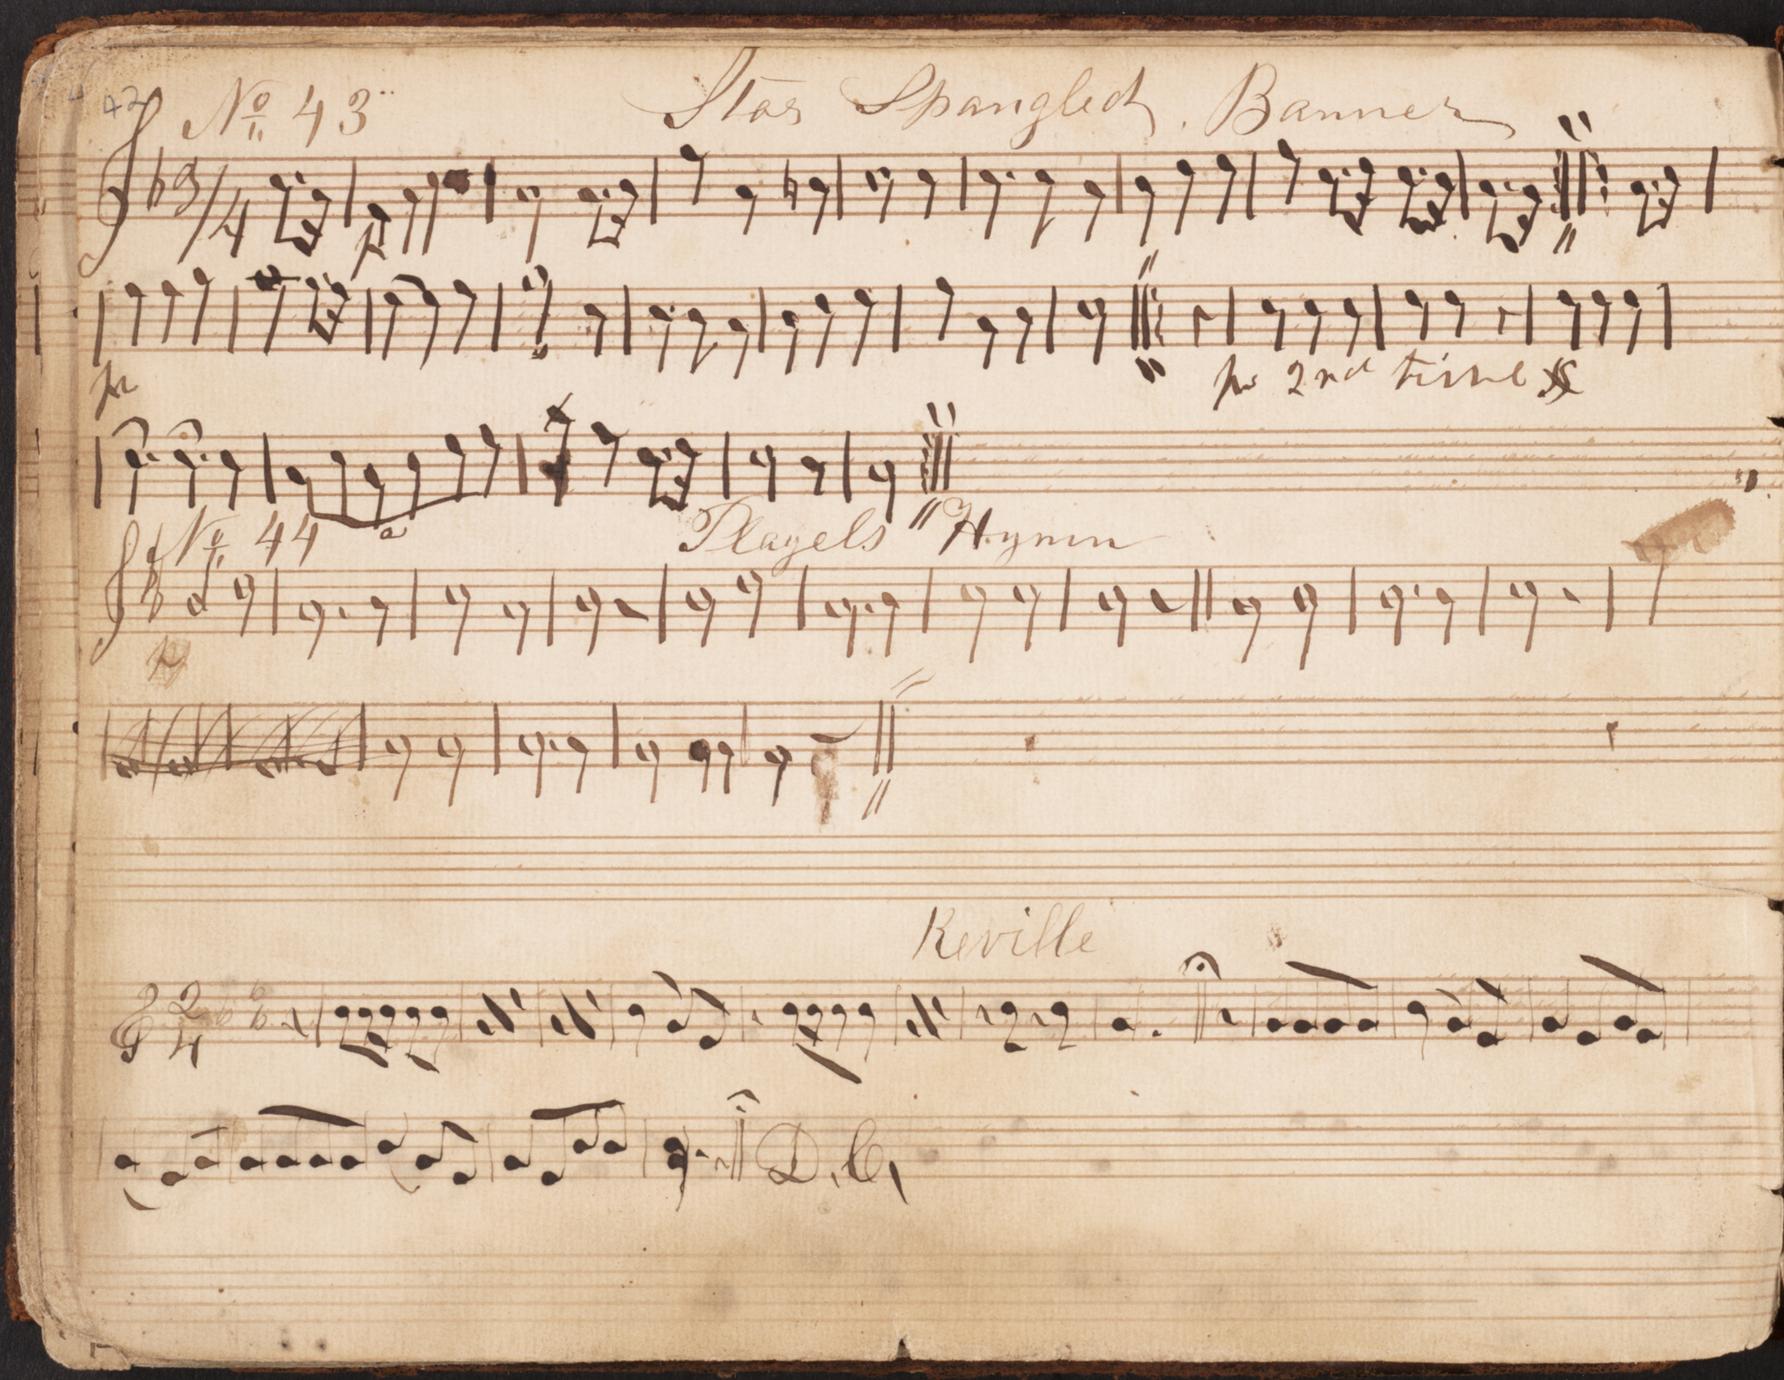 42
No 43 Star Spangled Banner
3/4
p
p
p 2nd time
No 44 Playels Hymn
p
Reville
2/4
D.C,